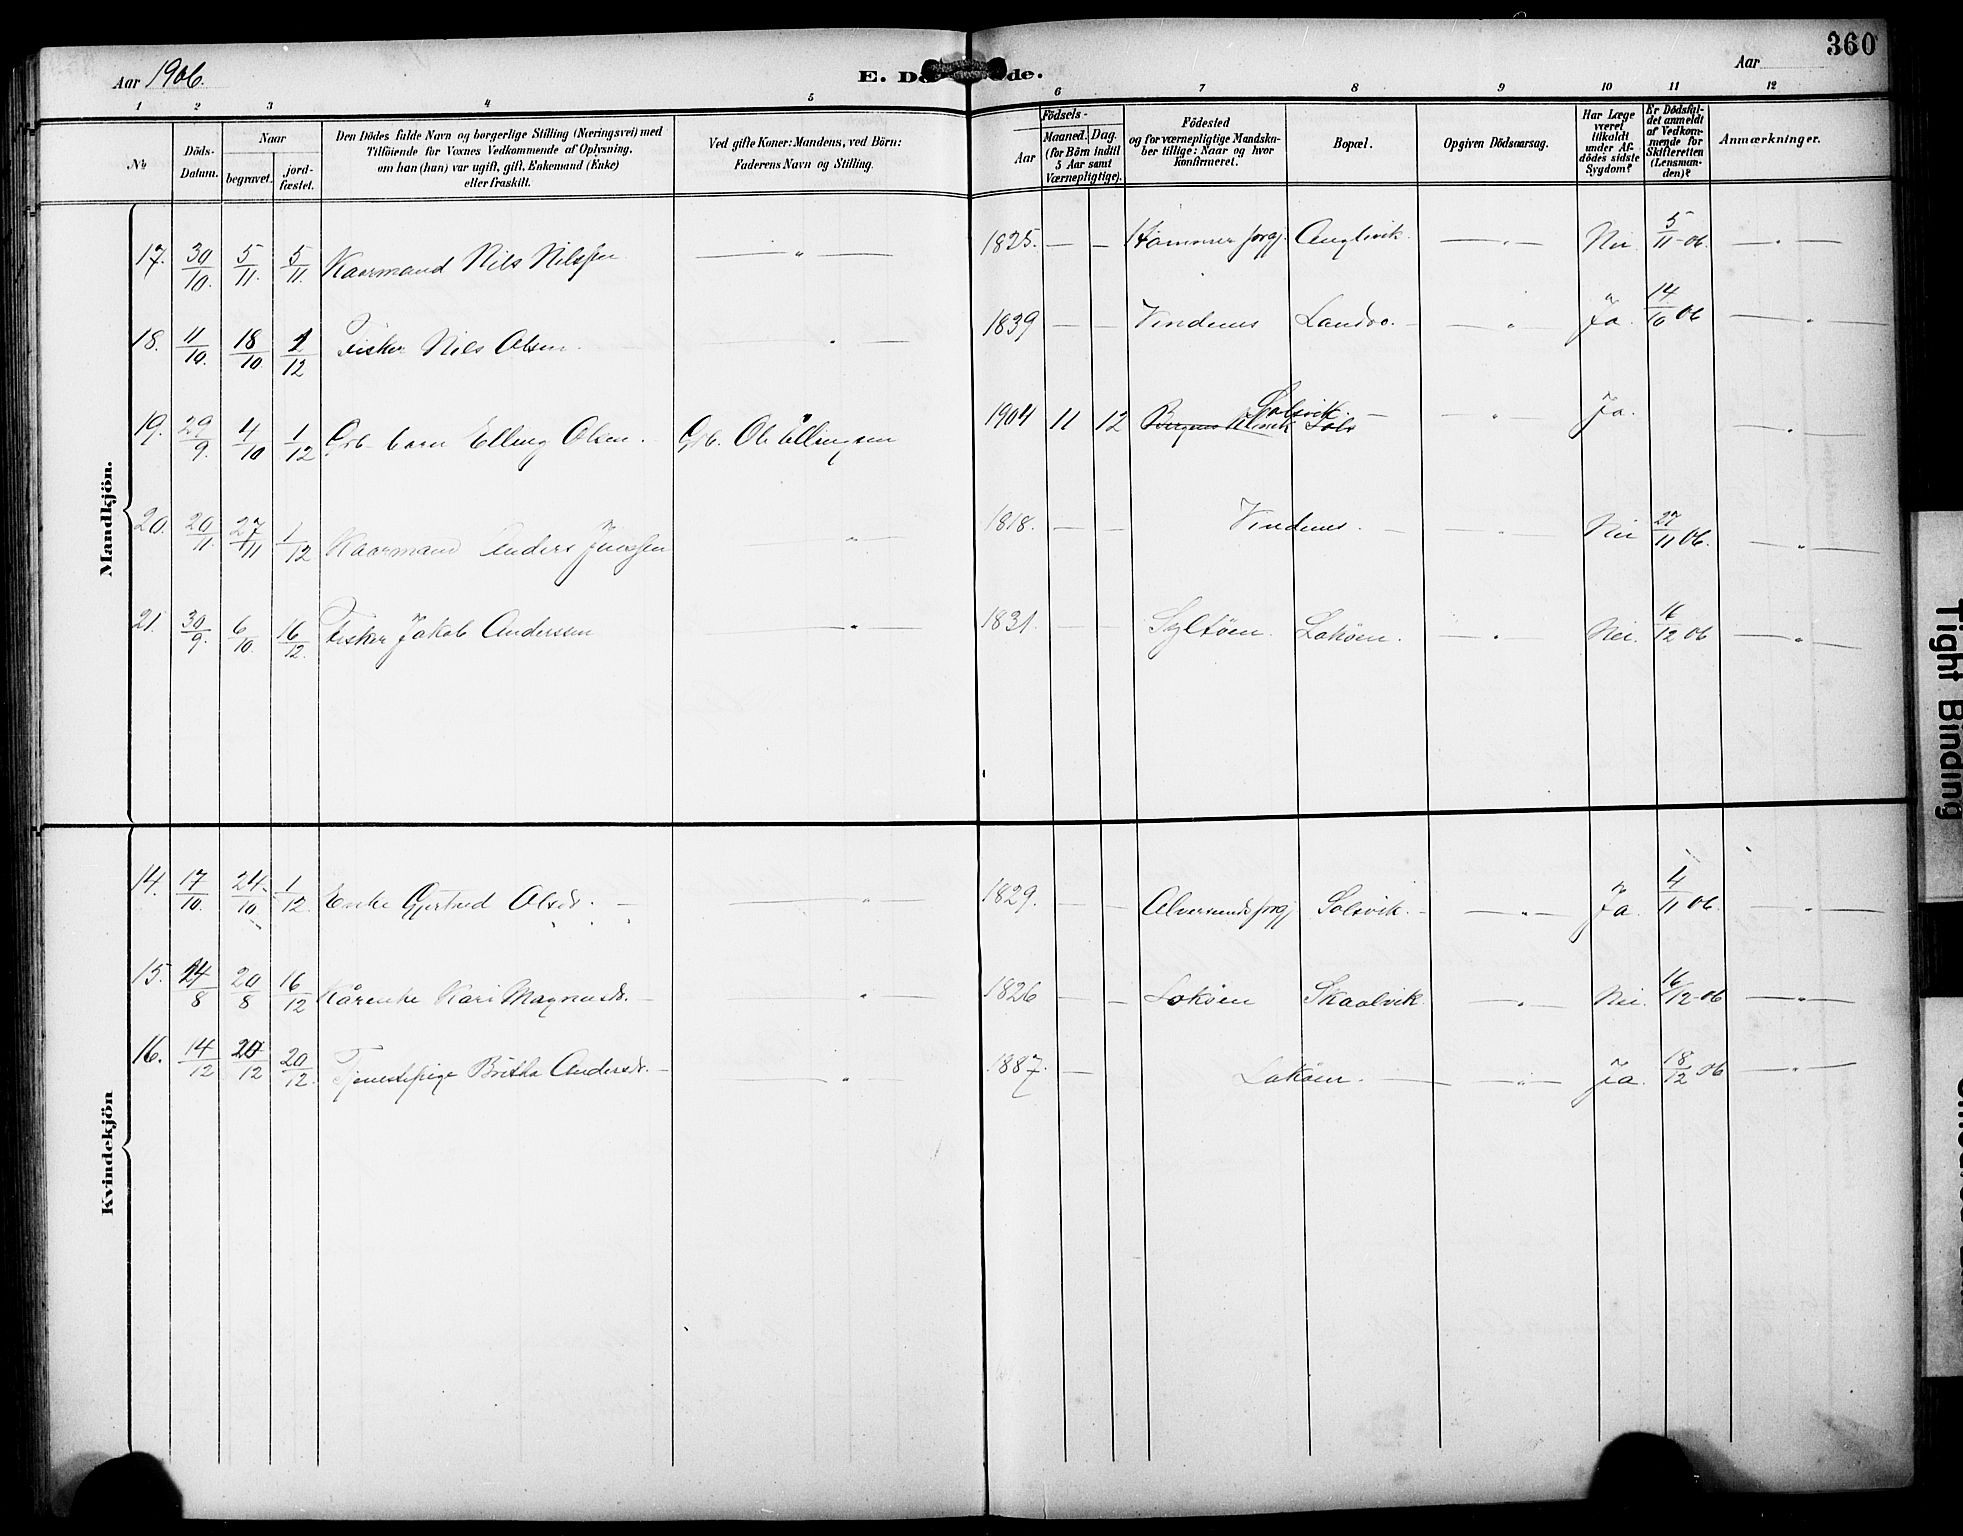 360
Aar 1906.
E. Dø de.
Aar
1 2 3 4 5 6 7 8 9 10 11 12
№
Döds-Datum.
Naar
begravet.
jord-fæstet.
Den Dödes fulde Navn og borgerlige Stilling (Næringsvei) med
Tilföiende for Voxnes Vedkommende af Oplysning,
om han (hun) var ugift, gift, Enkemand (Enke)
eller fraskilt.
Ved gifte Koner: Mandens, ved Börn:
Faderens Navn og Stilling.
Födsels-
Aar
Maaned. Dag.
(for Börn indtil
5 Aar samt
Værnepligtige).
Födested
og for værnepligtige Mandska-
ber tillige: Naar og hvor
konfirmeret.
Bopæl.
Opgiven Dödsaarsag.
Har Læge
været
tilkaldt
under Af-
dödes sidste
Sygdom?
Er Dödsfal-
det anmeldt
af Vedkom-
mende for
Skifteretten
(Lensman-
den)?
Anmærkninger.
Mandkjön.
17. 30/10. 5/11. 5/11. Kaarmand Nils Nilssen — " — 1825. — — Hammer prgj. — " — Nei 5/11-06. — " —
18. 11/10. 18/10 1/12 Fisker Nils Olsen. " — 1839 — — Vindenes Landro. — " Ja. 14/10 06 — " —
19. 29/9. 4/10 1/12 Grb. barn Elling Olsen. Grb. Ole Ellingsen 1904 11 12 Solsvik. — " Ja. — " —
20. 20/11. 27/11 1/12 Kaarmand Anders — " — 1818. — — Vindenes. — " — Nei 27/11 06. — " —
21. 30/9. 6/10. 16/12. Fisker Jakob Anderssen — " 1831. — — Syltöen. Loköen. — " — Nei. 16/12 06 — " —
Kvindekjön
14. 17/10. 24/10 1/12. Enke Gjertrud Olsd. — — " — 1829. — — Alversunds prgj Solsvik. — — " — Ja. 4/11 06. — " —
15. 14/8 20/8 16/12 Kårenke Kari Magnusd. — — " — 1826 — — Loköen Skaalvik — " — Nei. 16/12-06 — " —
16. 14/12 20/12 20/12. Tjenestepige Britha Andersd. — — " — 1887. — Loköen. — — " — Ja. 18/12 06 — " —
Tight Binding